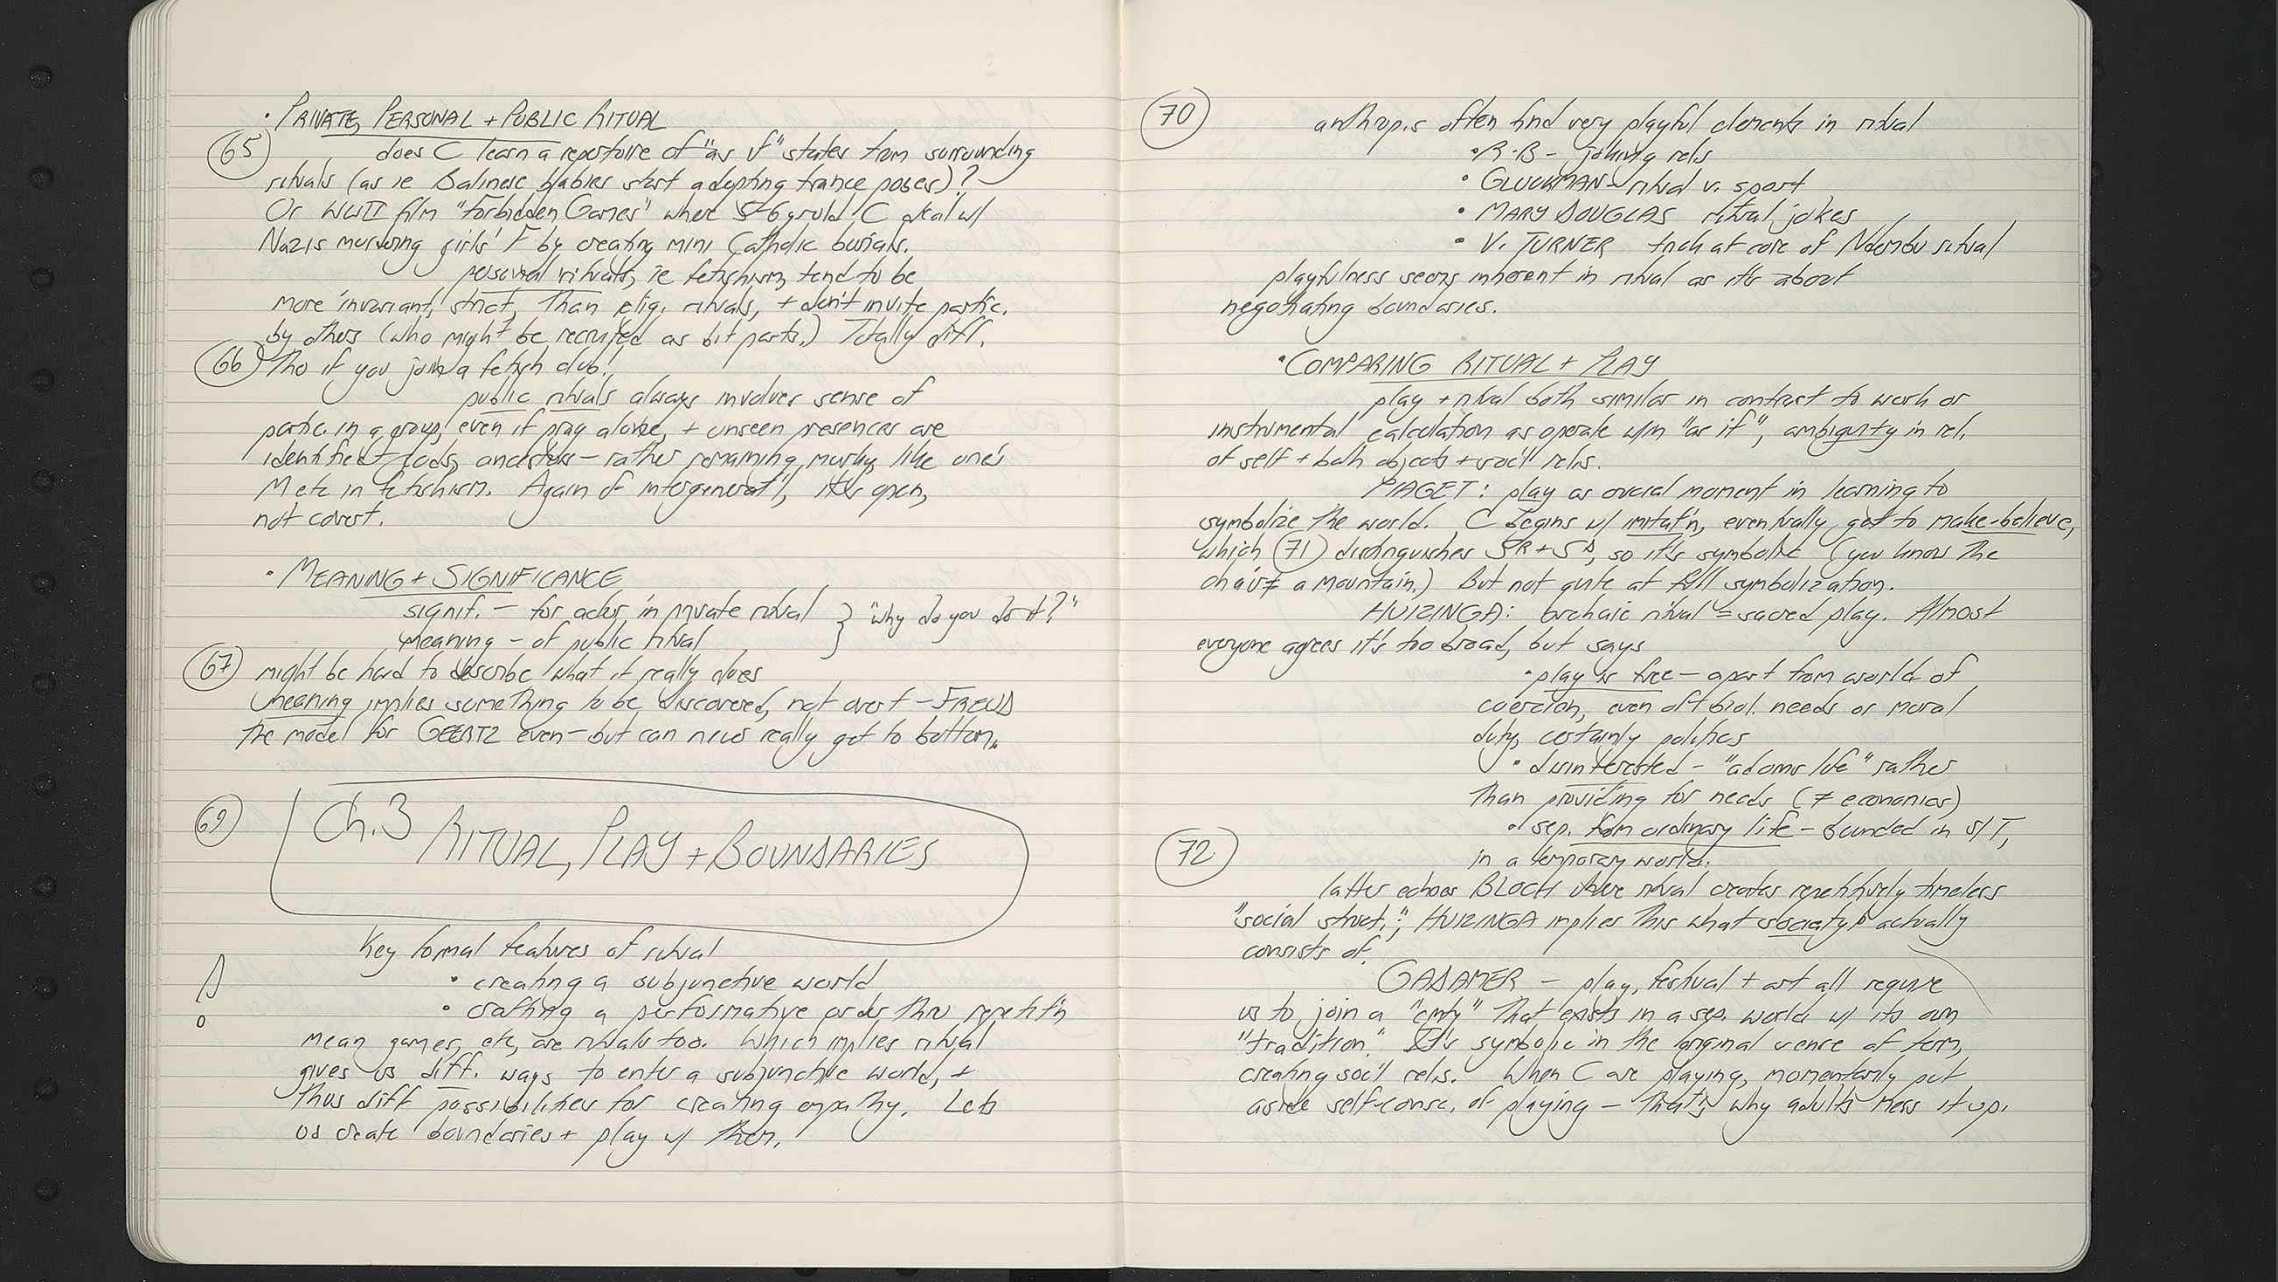 • PRIVATE, PERSONAL + PUBLIC RITUAL
65 does C learn a repertoire of "as if" states from surrounding
rituals (as ie Balinese babies start adopting trance poses)?
Or WWII film "Forbidden Games" where 5-6 yr old C deal w/
Nazis murdering girls' F by creating mini Catholic burials.
personal rituals, ie fetishism, tend to be
more invariant, strict, than relig. rituals, + don't invite partic.
by others (who might be recruited as bit parts.) Totally diff.
66 Tho if you join a fetish club!
public rituals always involves sense of
partic. in a group, even if pray alone, + unseen presences are
identified gods, ancestors – rather remaining murky, like one's
M etc in fetishism. Again if intergenerat'l, it's open,
not covert.
• MEANING + SIGNIFICANCE
signif. – for actor, in private ritual } "why do you do it?"
meaning – of public ritual
67 might be hard to describe what it really does
meaning implies something to be discovered, not overt – FREUD
the model for GEERTZ even – but can never really get to bottom.
69 Ch. 3 RITUAL, PLAY + BOUNDARIES
Key formal features of ritual
• creating a subjunctive world
! • crafting a performative order thru repetit'n
mean games, etc, are rituals too. Which implies ritual
gives us diff. ways to enter a subjunctive world, +
thus diff possibilities for creating empathy. Lets
us create boundaries + play w/ them.
70 anthrop.s often find very playful elements in ritual
• R-B – joking rels
• GLUCKMAN – ritual v. sport
• MARY DOUGLAS ritual jokes
• V. TURNER trick at core of Ndembu ritual
playfulness seems inherent in ritual as it's about
negotiating boundaries.
• COMPARING RITUAL + PLAY
play + ritual both similar in contrast to work or
instrumental calculation as operate w/in "as if", ambiguity in rel.
of self + both objects + soc'l relns.
PIAGET: play as crucial moment in learning to
symbolize the world. C begins w/ imitat'n, eventually get to make-believe,
which 71 distinguishes SR + SD, so it's symbolic (you know the
chair ≠ a mountain.) But not quite at full symbolization.
HUIZINGA: archaic ritual = sacred play. Almost
everyone agrees it's too broad, but says
• play is free – apart from world of
coercion, even of biol. needs or moral
duty, certainly politics
• disinterested – "adorns life" rather
than providing for needs (≠ economics)
• sep. from ordinary life – bounded in S/T,
72 in a temporary world.
latter echoes BLOCH where ritual creates repetitively timeless
"social struct."; HUIZINGA implies this what society actually
consists of.
GADAMER – play, festival + art all require
us to join a "cmty" that exists in a sep. world w/ its own
"tradition." It's symbolic in the original sense of term,
creating soc'l rels. When C are playing, momentarily put
aside self-consc. of playing – that's why adults mess it up.